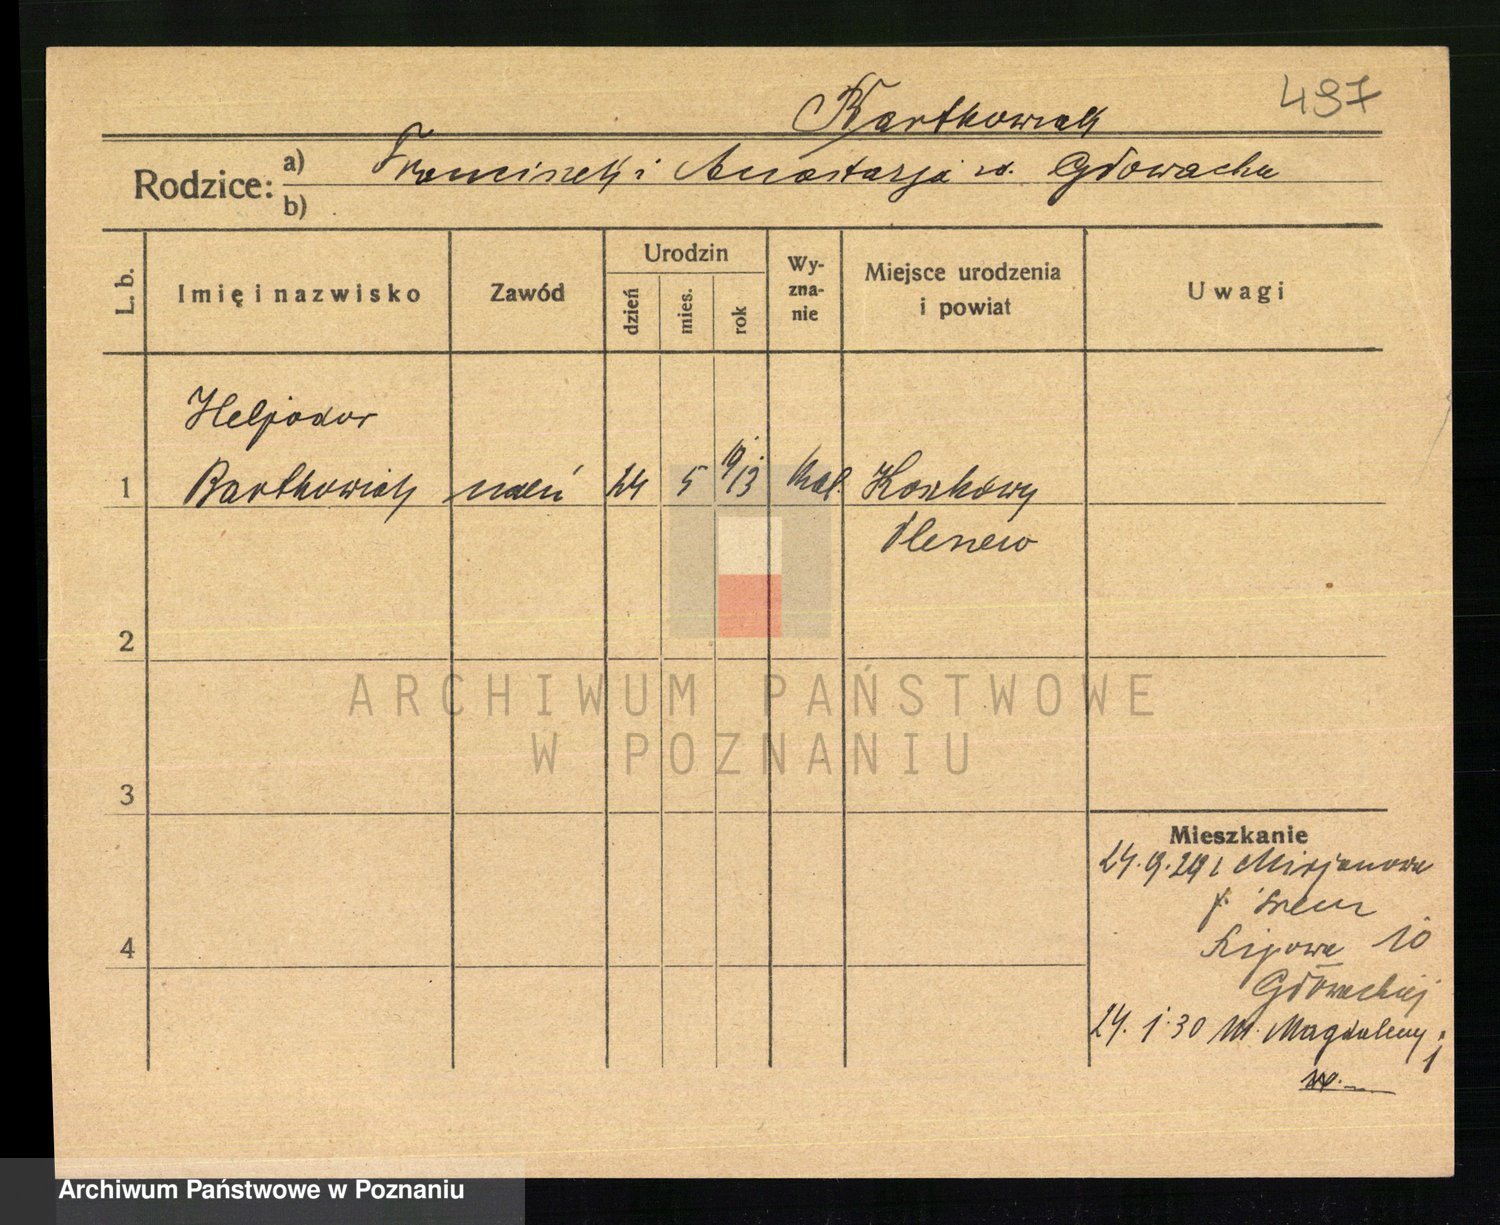 497
Bartkowiak
Rodzice: a) Franciszek i Anastazja z. Głowacka
b)
L. b.
Imię i nazwisko
Zawód
Urodzin
dzień
mies.
rok
Wy-
zna-
nie
Miejsce urodzenia
i powiat
Uwagi
Heljodor
1 Bartkowiak uczeń 24 5 1913 kat. Koszkowy
Plesew
2
3
4
ARCHIWUM PAŃSTWOWE
W POZNANIU
Mieszkanie
24.9.29 z Mirjanowa
p. Śrem
Lipowa 10
Głowackiej
24. 1. 30 M. Magdaleny 1
Archiwum Państwowe w Poznaniu